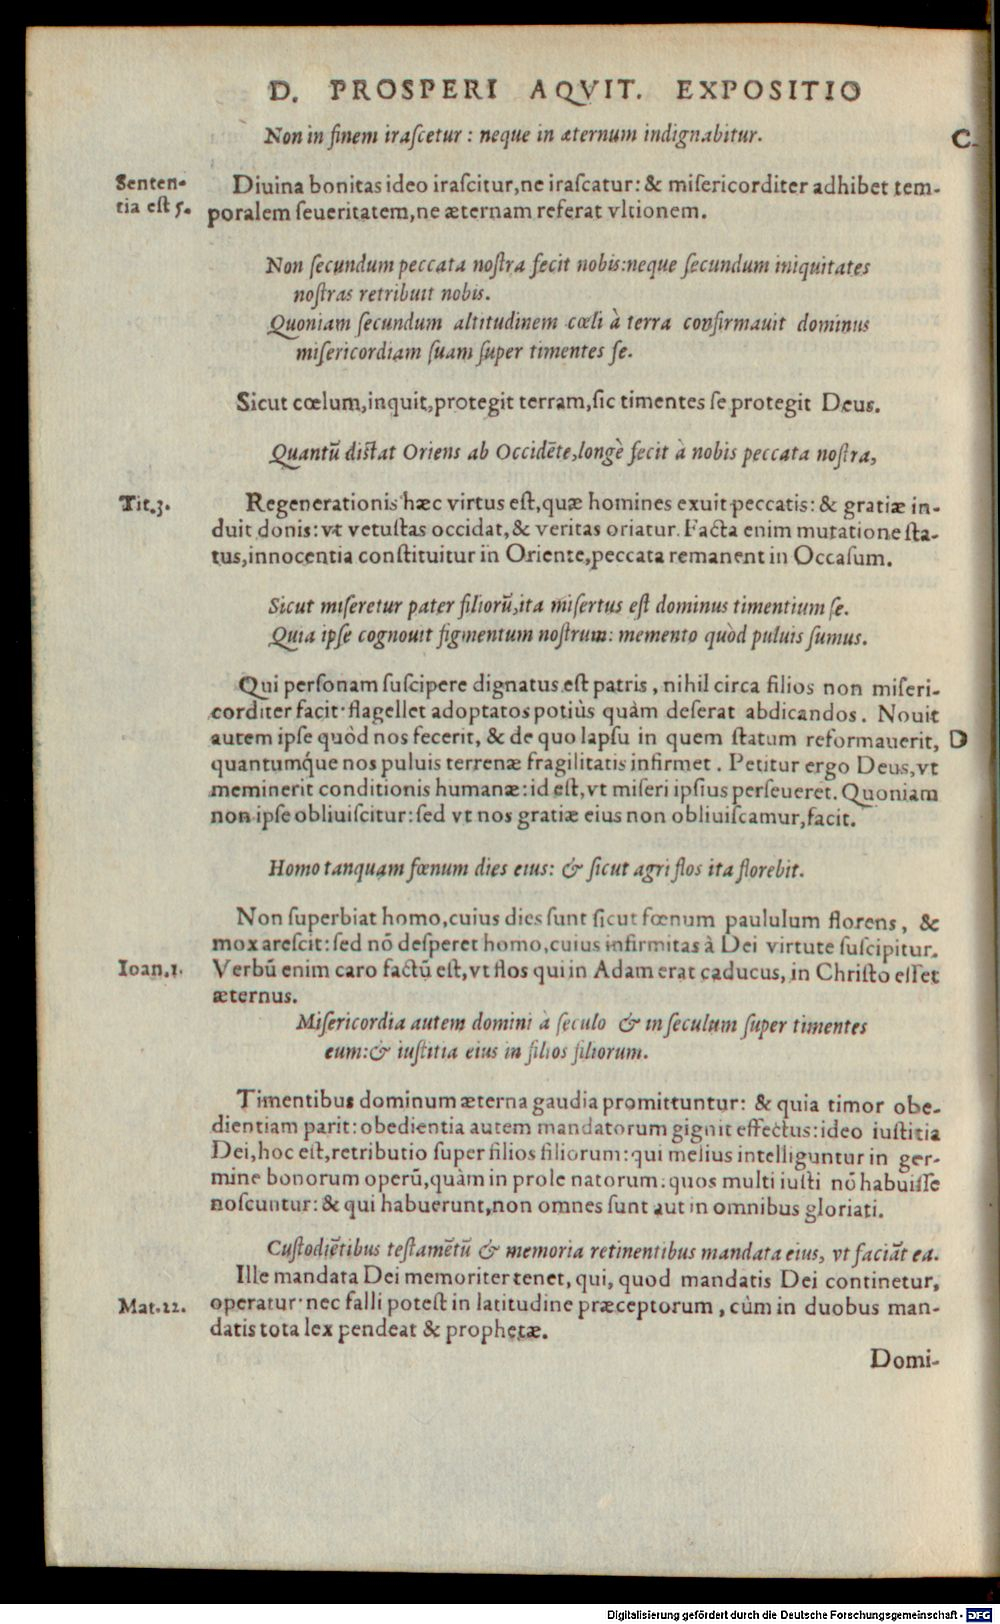 D. PROSPERI AQVIT. EXPOSITIO
Non in finem iraſcetur : neque in æternum indignabitur.
C
Senten-
tia eſt 5.
Diuina bonitas ideo iraſcitur,ne iraſcatur: & miſericorditer adhibet tem-
poralem ſeueritatem,ne æternam referat vltionem.
Non ſecundum peccata noſtra fecit nobis:neque ſecundum iniquitates
noſtras retribuit nobis.
Quoniam ſecundum altitudinem cœli à terra confirmauit dominus
miſericordiam ſuam ſuper timentes ſe.
Sicut cœlum,inquit,protegit terram,ſic timentes ſe protegit Deus.
Quantũ diſtat Oriens ab Occidẽte,longè fecit à nobis peccata noſtra,
Tit.3.
Regenerationis hæc virtus eſt,quæ homines exuit peccatis: & gratiæ in-
duit donis: vt vetuſtas occidat,& veritas oriatur. Facta enim mutatione ſta-
tus,innocentia conſtituitur in Oriente,peccata remanent in Occaſum.
Sicut miſeretur pater filiorũ,ita miſertus eſt dominus timentium ſe.
Quia ipſe cognouit figmentum noſtrum: memento quòd puluis ſumus.
Qui perſonam ſuſcipere dignatus eſt patris , nihil circa filios non miſeri-
corditer facit· flagellet adoptatos potiùs quàm deſerat abdicandos. Nouit
autem ipſe quòd nos fecerit, & de quo lapſu in quem ſtatum reformauerit,
D
quantumq́ue nos puluis terrenæ fragilitatis infirmet . Petitur ergo Deus,vt
meminerit conditionis humanæ: id eſt,vt miſeri ipſius perſeueret. Quoniam
non ipſe obliuiſcitur: ſed vt nos gratiæ eius non obliuiſcamur,facit.
Homo tanquam fœnum dies eius: & ſicut agri flos ita florebit.
Non ſuperbiat homo,cuius dies ſunt ſicut fœnum paululum florens, &
mox areſcit: ſed nõ deſperet homo,cuius infirmitas à Dei virtute ſuſcipitur.
Ioan.1.
Verbũ enim caro factũ eſt,vt flos qui in Adam erat caducus, in Chriſto eſſet
æternus.
Miſericordia autem domini à ſeculo & in ſeculum ſuper timentes
eum:& iuſtitia eius in filios filiorum.
Timentibus dominum æterna gaudia promittuntur: & quia timor obe-
dientiam parit: obedientia autem mandatorum gignit effectus: ideo iuſtitia
Dei,hoc eſt,retributio ſuper filios filiorum: qui melius intelliguntur in ger-
mine bonorum operũ,quàm in prole natorum: quos multi iuſti nõ habuiſſe
noſcuntur: & qui habuerunt,non omnes ſunt aut in omnibus gloriati.
Cuſtodiẽtibus teſtamẽtũ & memoria retinentibus mandata eius, vt faciãt ea.
Ille mandata Dei memoriter tenet, qui, quod mandatis Dei continetur,
Mat.22.
operatur· nec falli poteſt in latitudine præceptorum , cùm in duobus man-
datis tota lex pendeat & prophetæ.
Domi-
Digitalisierung gefördert durch die Deutsche Forschungsgemeinschaft - DFG